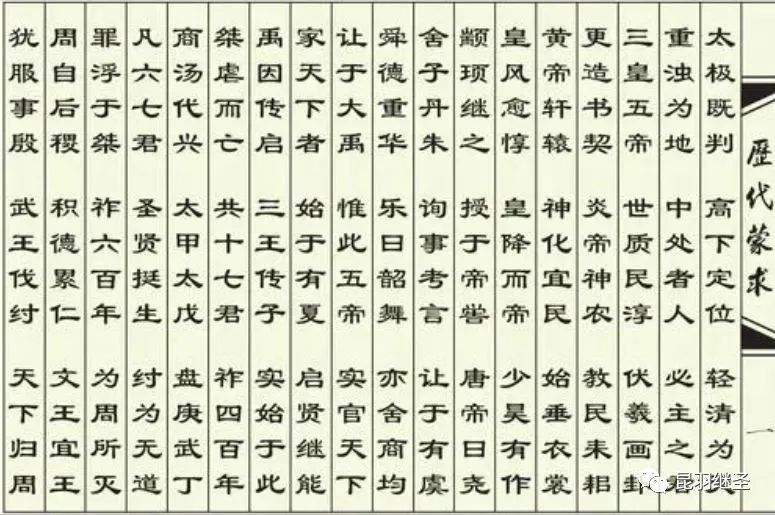 歷代蒙求
一
太极既判 高下定位 轻清为天
重浊为地 中处者人 必主之君
三皇五帝 世质民淳 伏羲画卦
更造书契 炎帝神农 教民耒耜
黄帝轩辕 神化宜民 始垂衣裳
皇风愈惇 皇降而帝 少昊有作
颛顼继之 授于帝喾 唐帝曰尧
舍子丹朱 询事考言 让于有虞
舜德重华 乐曰韶舞 亦舍商均
让于大禹 惟此五帝 实官天下
家天下者 始于有夏 启贤继能
禹因传启 三王传子 实始于此
桀虐而亡 共十七君 祚四百年
商汤代兴 太甲太戊 盘庚武丁
凡六七君 圣贤挺生 纣为无道
罪浮于桀 祚六百年 为周所灭
周自后稷 积德累仁 文王宜王
犹服事殷 武王伐纣 天下归周
昆羽继圣